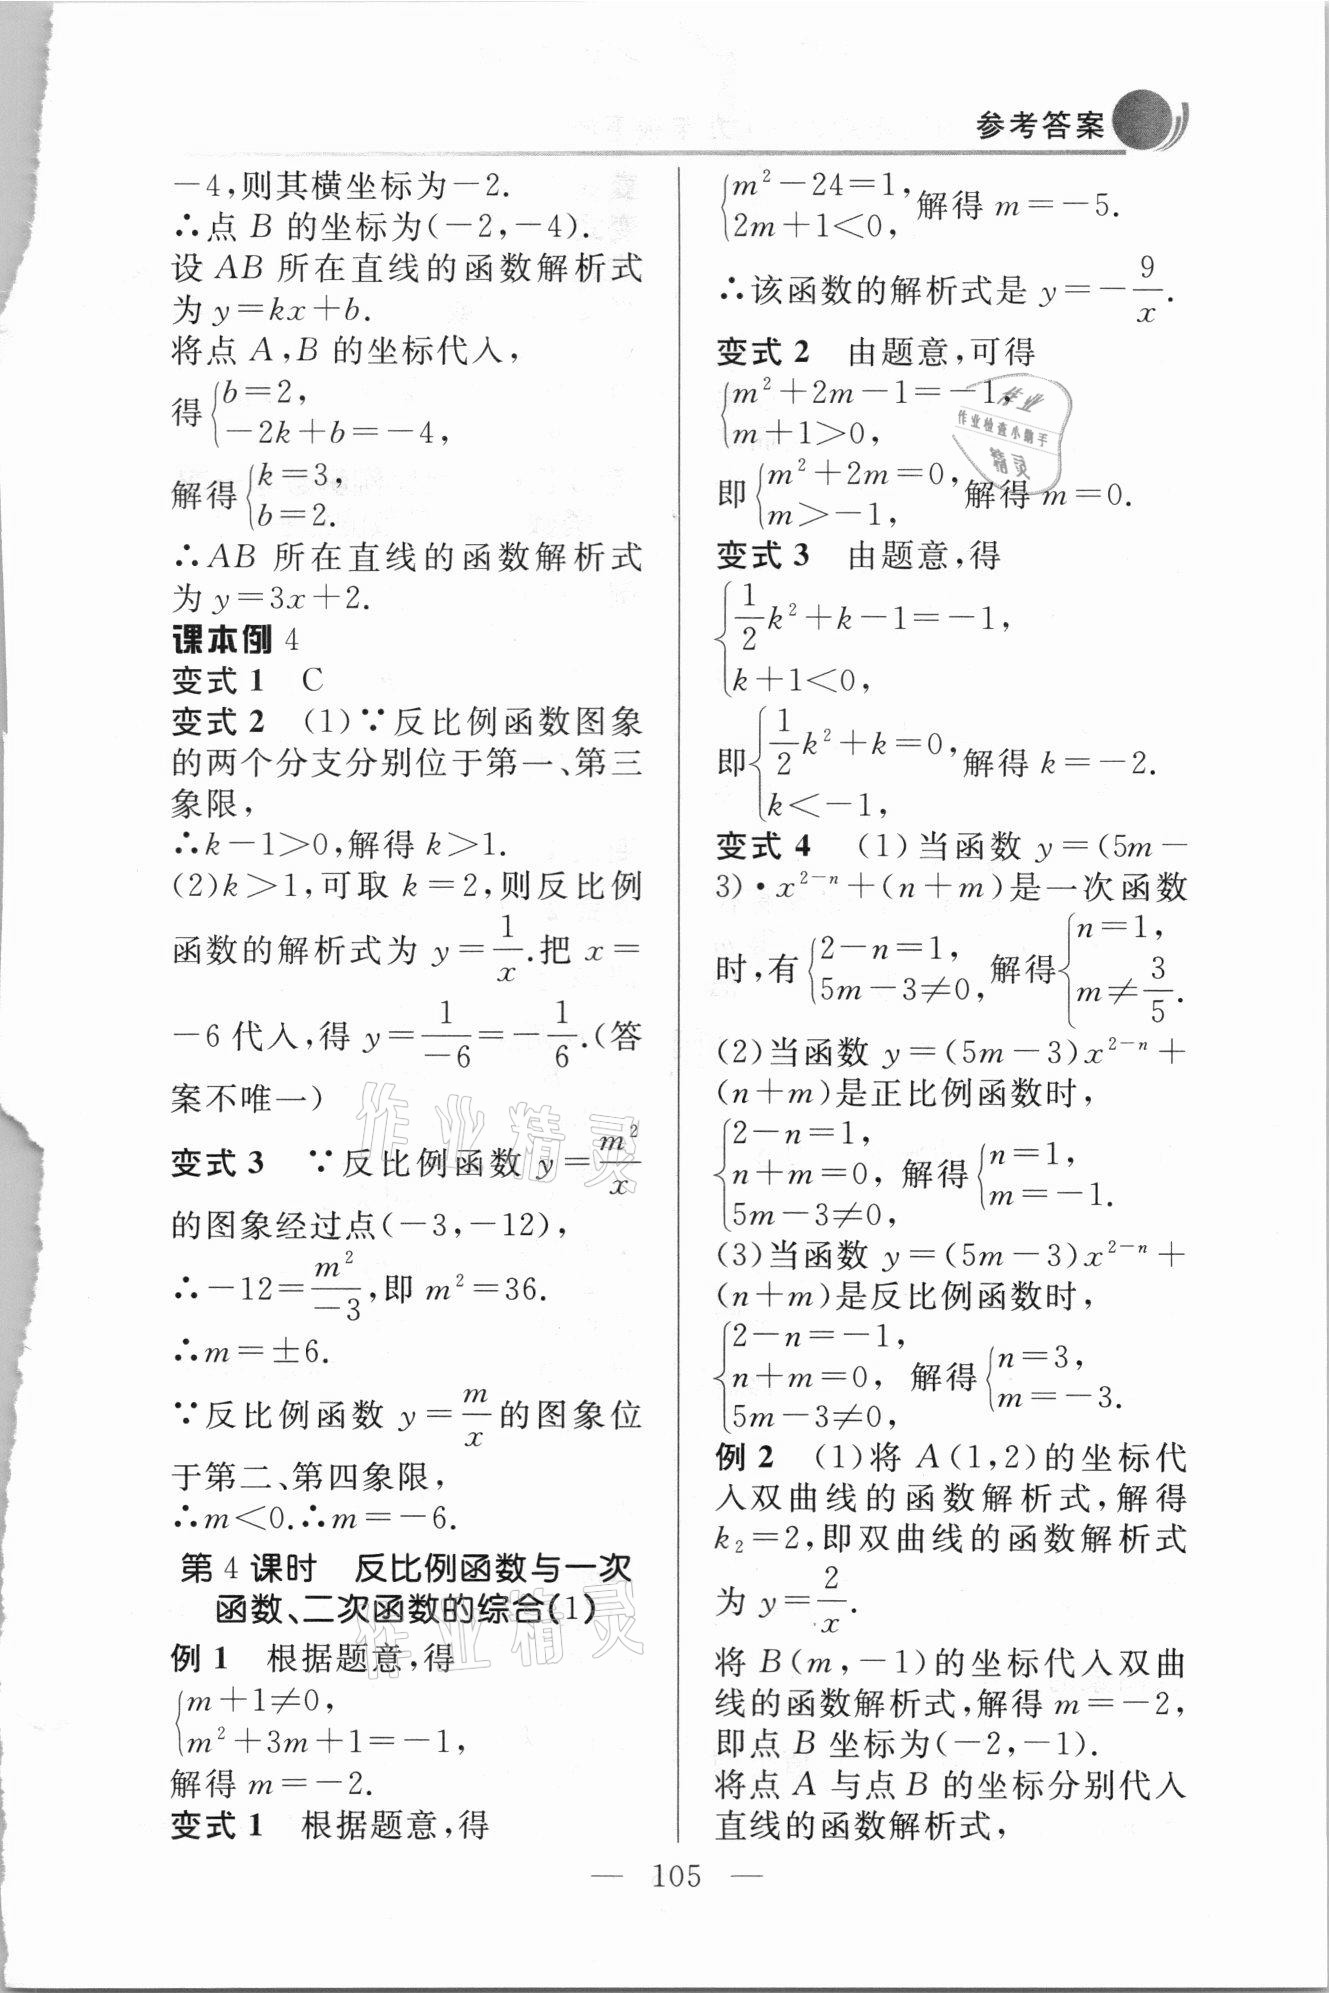 参考答案
－4,则其横坐标为－2.
∴点 B 的坐标为(－2,－4).
设 AB 所在直线的函数解析式
为 y＝kx＋b.
将点 A,B 的坐标代入,
得{b＝2,
－2k＋b＝－4,
解得{k＝3,
b＝2.
∴AB 所在直线的函数解析式
为 y＝3x＋2.
课本例 4
变式 1 C
变式 2 (1)∵反比例函数图象
的两个分支分别位于第一、第三
象限,
∴k－1＞0,解得 k＞1.
(2)k＞1,可取 k＝2,则反比例
函数的解析式为 y＝1/x.把 x＝
－6 代入,得 y＝1/－6＝－1/6.(答
案不唯一)
变式 3 ∵反比例函数 y＝m²/x
的图象经过点(－3,－12),
∴－12＝m²/－3,即 m²＝36.
∴m＝±6.
∵反比例函数 y＝m/x的图象位
于第二、第四象限,
∴m＜0.∴m＝－6.
第 4 课时 反比例函数与一次
函数、二次函数的综合(1)
例 1 根据题意,得
{m＋1≠0,
m²＋3m＋1＝－1,
解得 m＝－2.
变式 1 根据题意,得
{m²－24＝1,
2m＋1＜0,解得 m＝－5.
∴该函数的解析式是 y＝－9/x.
变式 2 由题意,可得
{m²＋2m－1＝－1,
m＋1＞0,
即{m²＋2m＝0,
m＞－1,解得 m＝0.
变式 3 由题意,得
{1/2k²＋k－1＝－1,
k＋1＜0,
即{1/2k²＋k＝0,
k＜－1,解得 k＝－2.
变式 4 (1)当函数 y＝(5m－
3)·x²⁻ⁿ＋(n＋m)是一次函数
时,有{2－n＝1,
5m－3≠0,解得{n＝1,
m≠3/5.
(2)当函数 y＝(5m－3)x²⁻ⁿ＋
(n＋m)是正比例函数时,
{2－n＝1,
n＋m＝0,
5m－3≠0,解得{n＝1,
m＝－1.
(3)当函数 y＝(5m－3)x²⁻ⁿ＋
(n＋m)是反比例函数时,
{2－n＝－1,
n＋m＝0,
5m－3≠0,解得{n＝3,
m＝－3.
例 2 (1)将 A(1,2)的坐标代
入双曲线的函数解析式,解得
k₂＝2,即双曲线的函数解析式
为 y＝2/x.
将 B(m,－1)的坐标代入双曲
线的函数解析式,解得 m＝－2,
即点 B 坐标为(－2,－1).
将点 A 与点 B 的坐标分别代入
直线的函数解析式,
— 105 —
作业
作业检查小助手
精灵
作业精灵
作业精灵